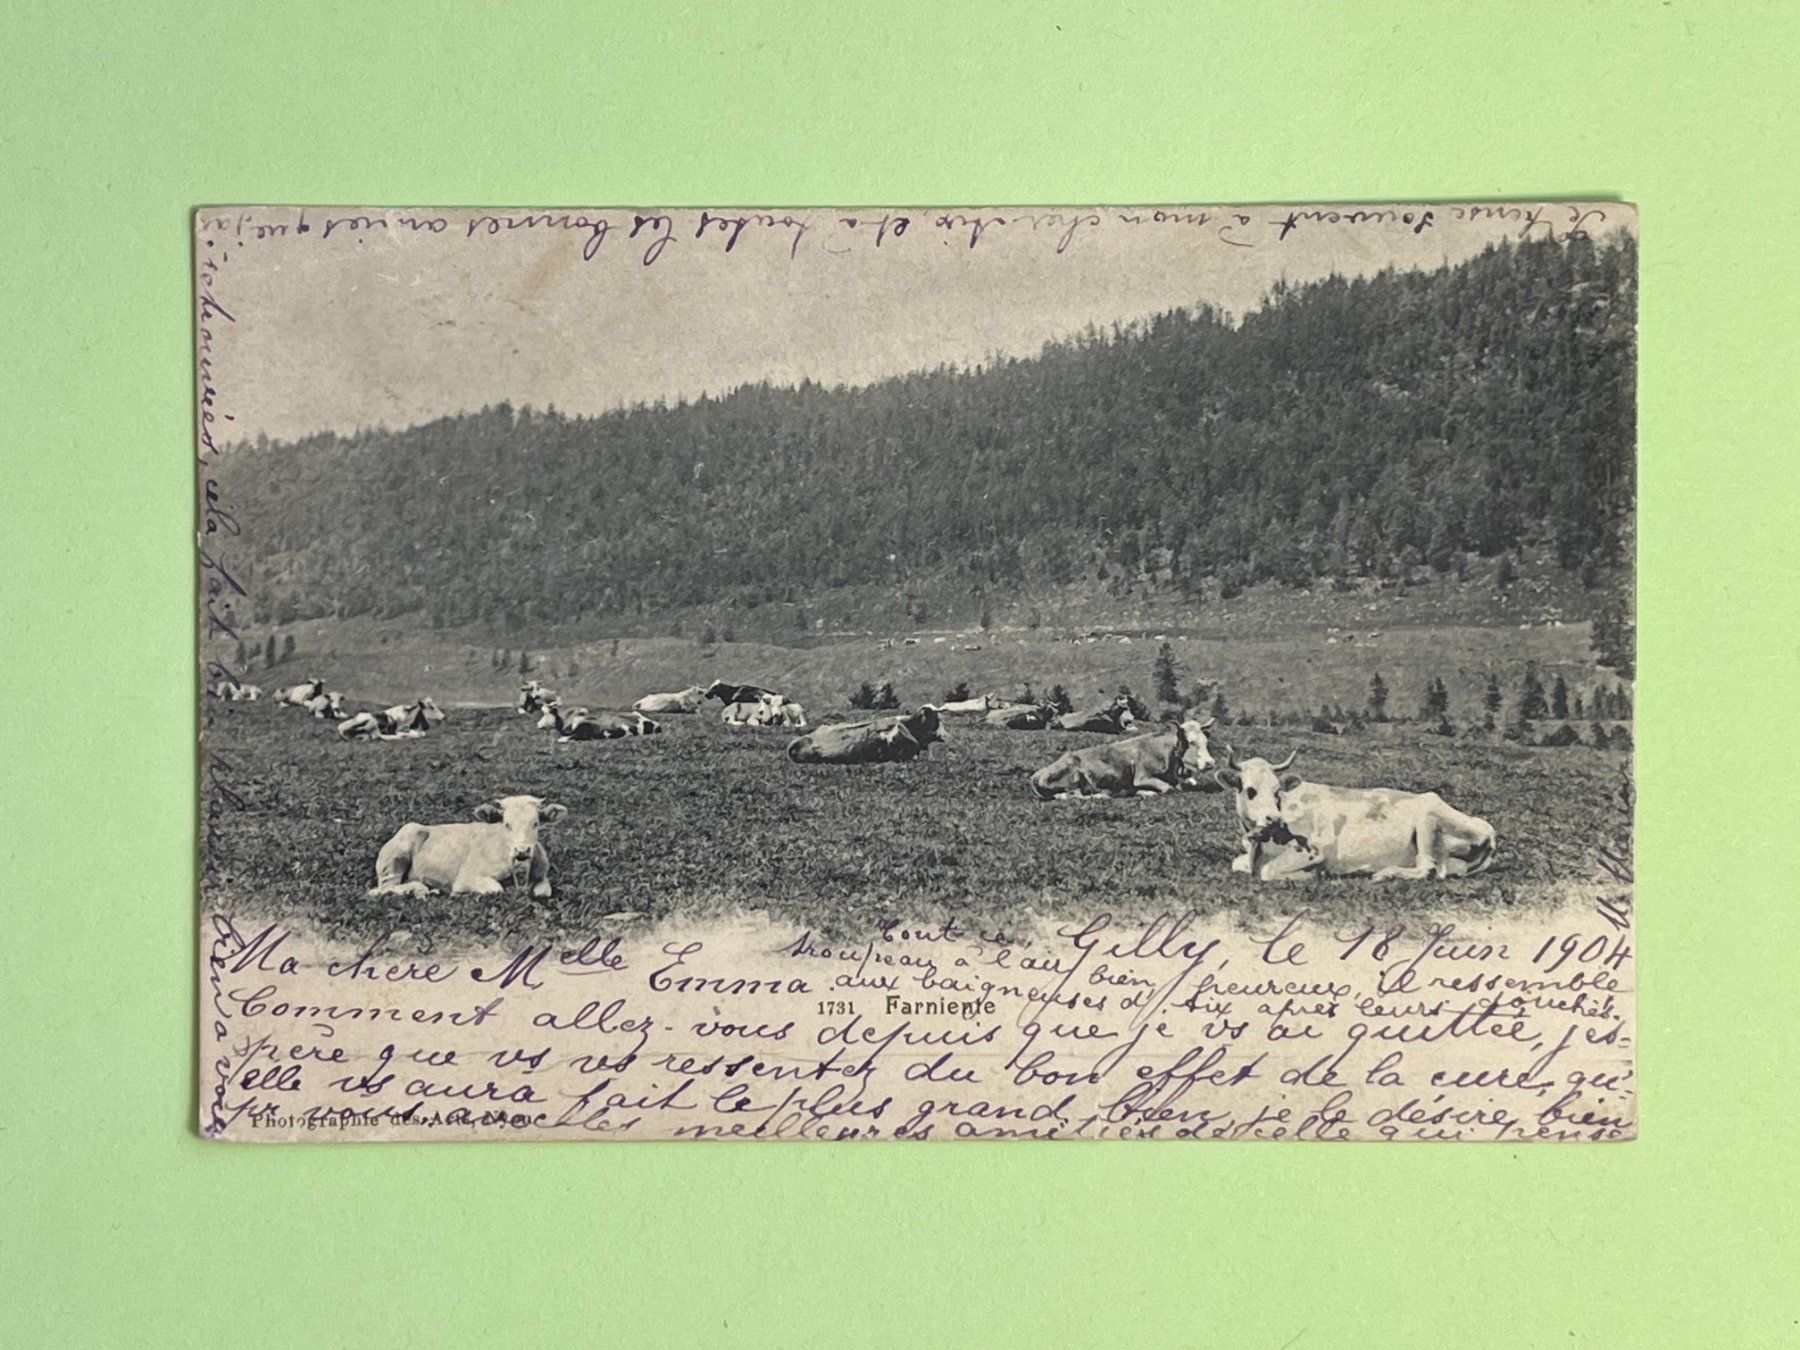 Gilly, le 18 Juin 1904
Ma chère Melle Emma.
Tout ce
troupeau à l'air bien heureux, il ressemble
aux baigneuses d'Aix après leurs douches.
1731 Farniente
Comment allez-vous depuis que je vs ai quittée, j'es-
père que vs vs ressentez du bon effet de la cure, qu'-
elle vs aura fait le plus grand bien, je le désire bien
pr vous, avec les meilleures amitiés de celle qui pense
Photographie des Arts,
bien à vous
Marie
Je pense souvent à mon cher Aix, et à toutes les bonnes amies que j'ai
cela fait
plaisir